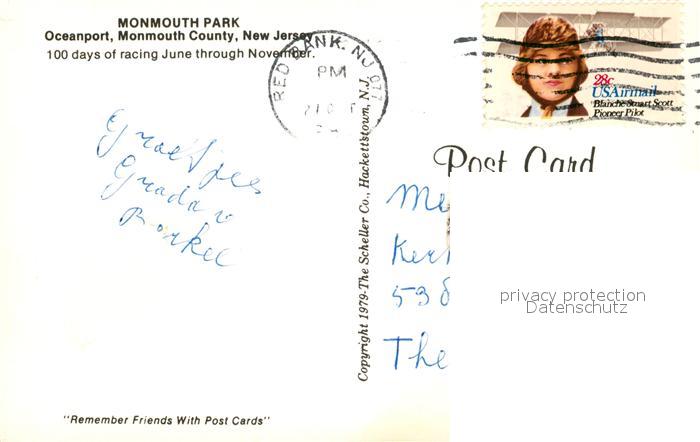 MONMOUTH PARK
Oceanport, Monmouth County, New Jersey
100 days of racing June through November.
RED BANK. NJ 077
PM
28c
USAirmail
Blanche Stuart Scott
Pioneer Pilot
Post Card
Groetjes
Grada v
Borkel
Copyright 1979-The Scheller Co., Hackettstown, N.J.
Me
Ker
538
The
privacy protection
Datenschutz
"Remember Friends With Post Cards"